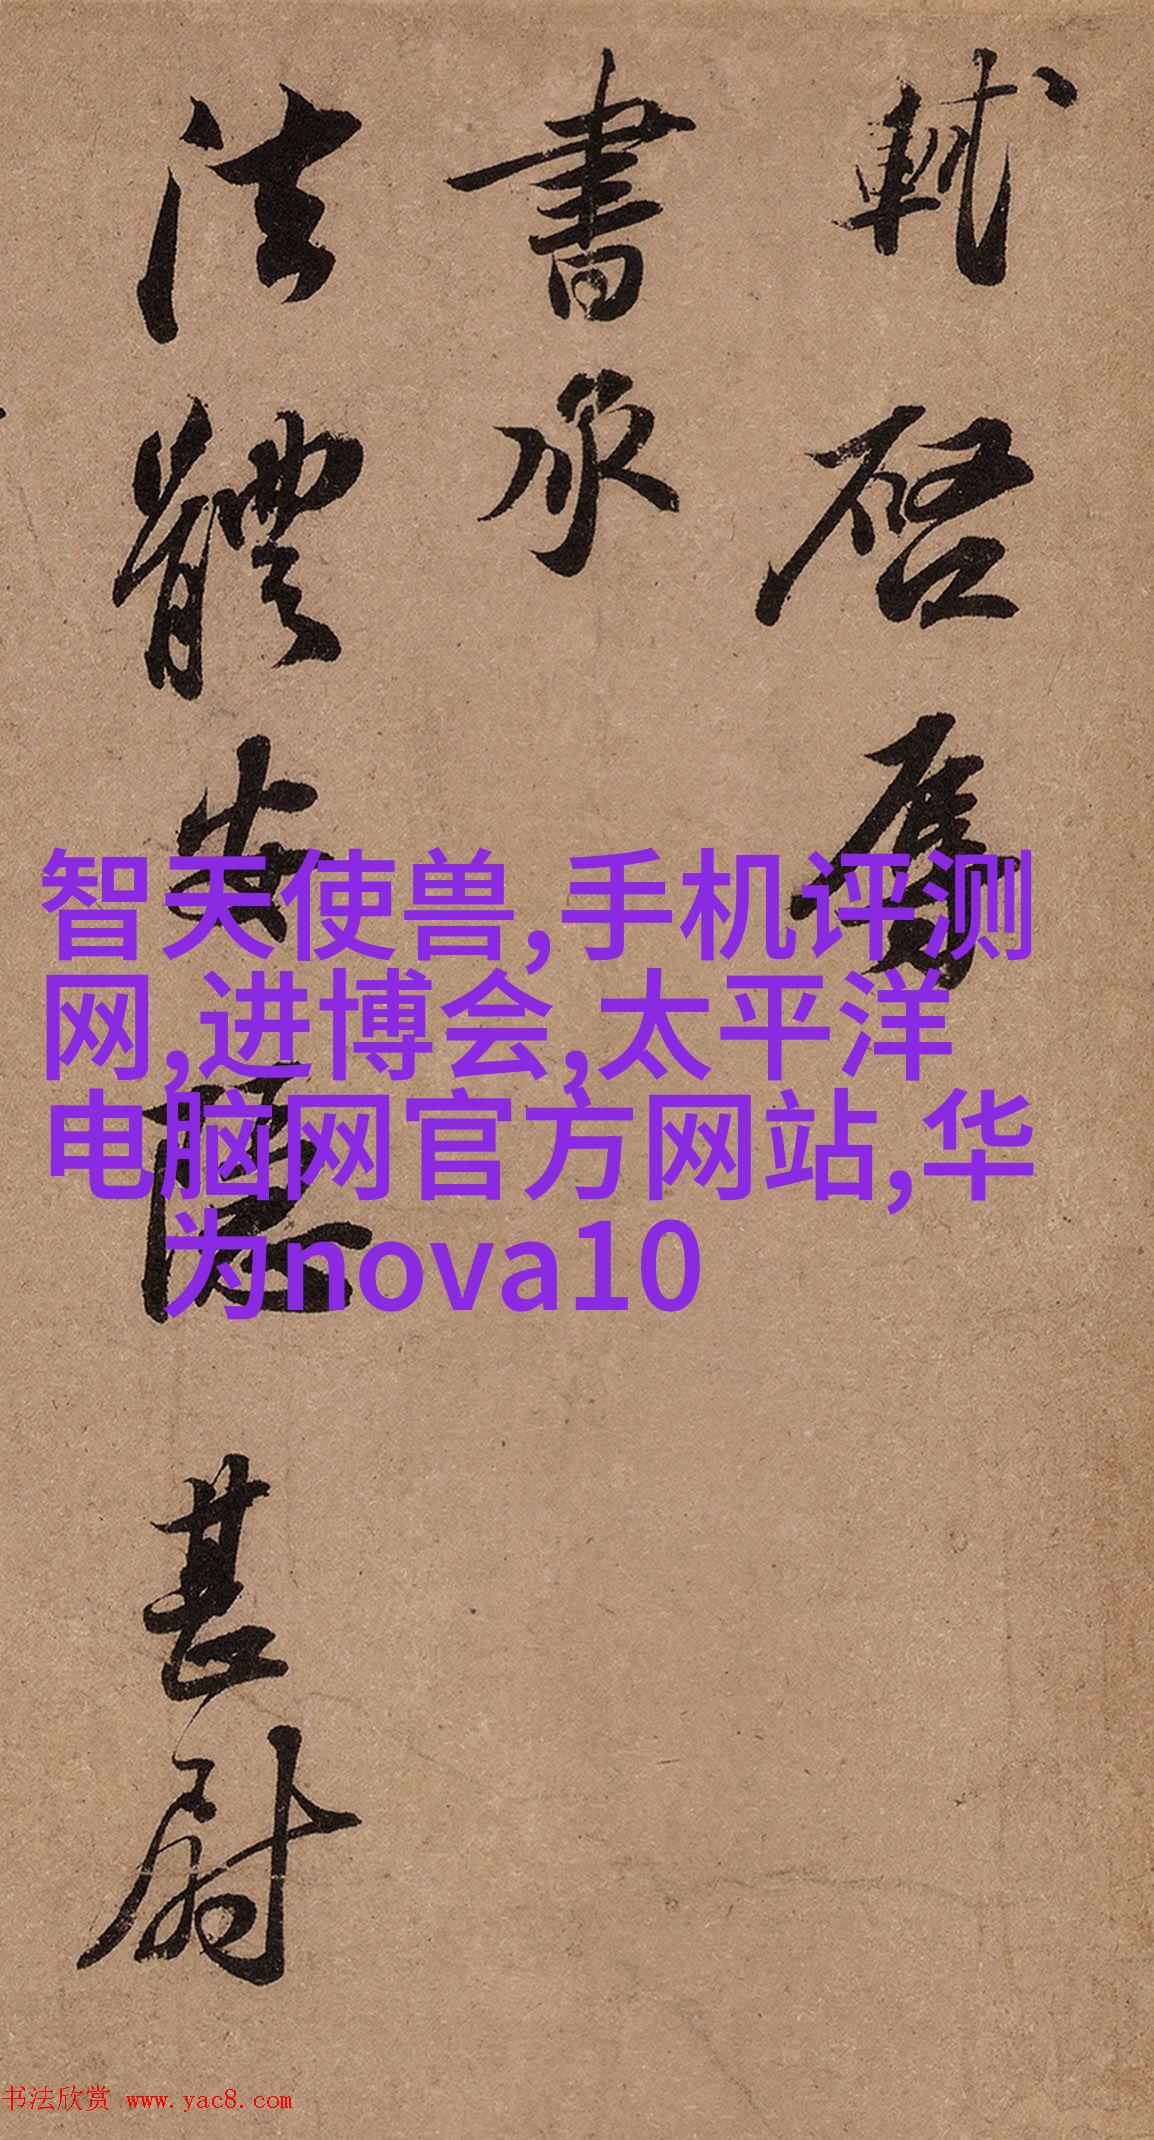 軾啓辱
書承
法體安隱甚慰
智天使兽,手机评测
网,进博会,太平洋
电脑网官方网站,华
为nova10
书法欣赏 www.yac8.com